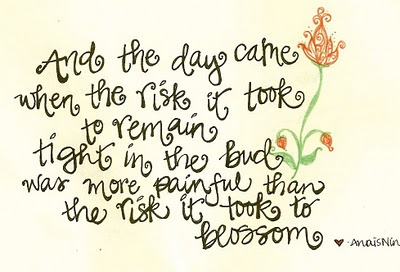 And the day came
when the risk it took
to remain
tight in the bud
was more painful than
the risk it took to
blossom
♥ - Anaïs Nin